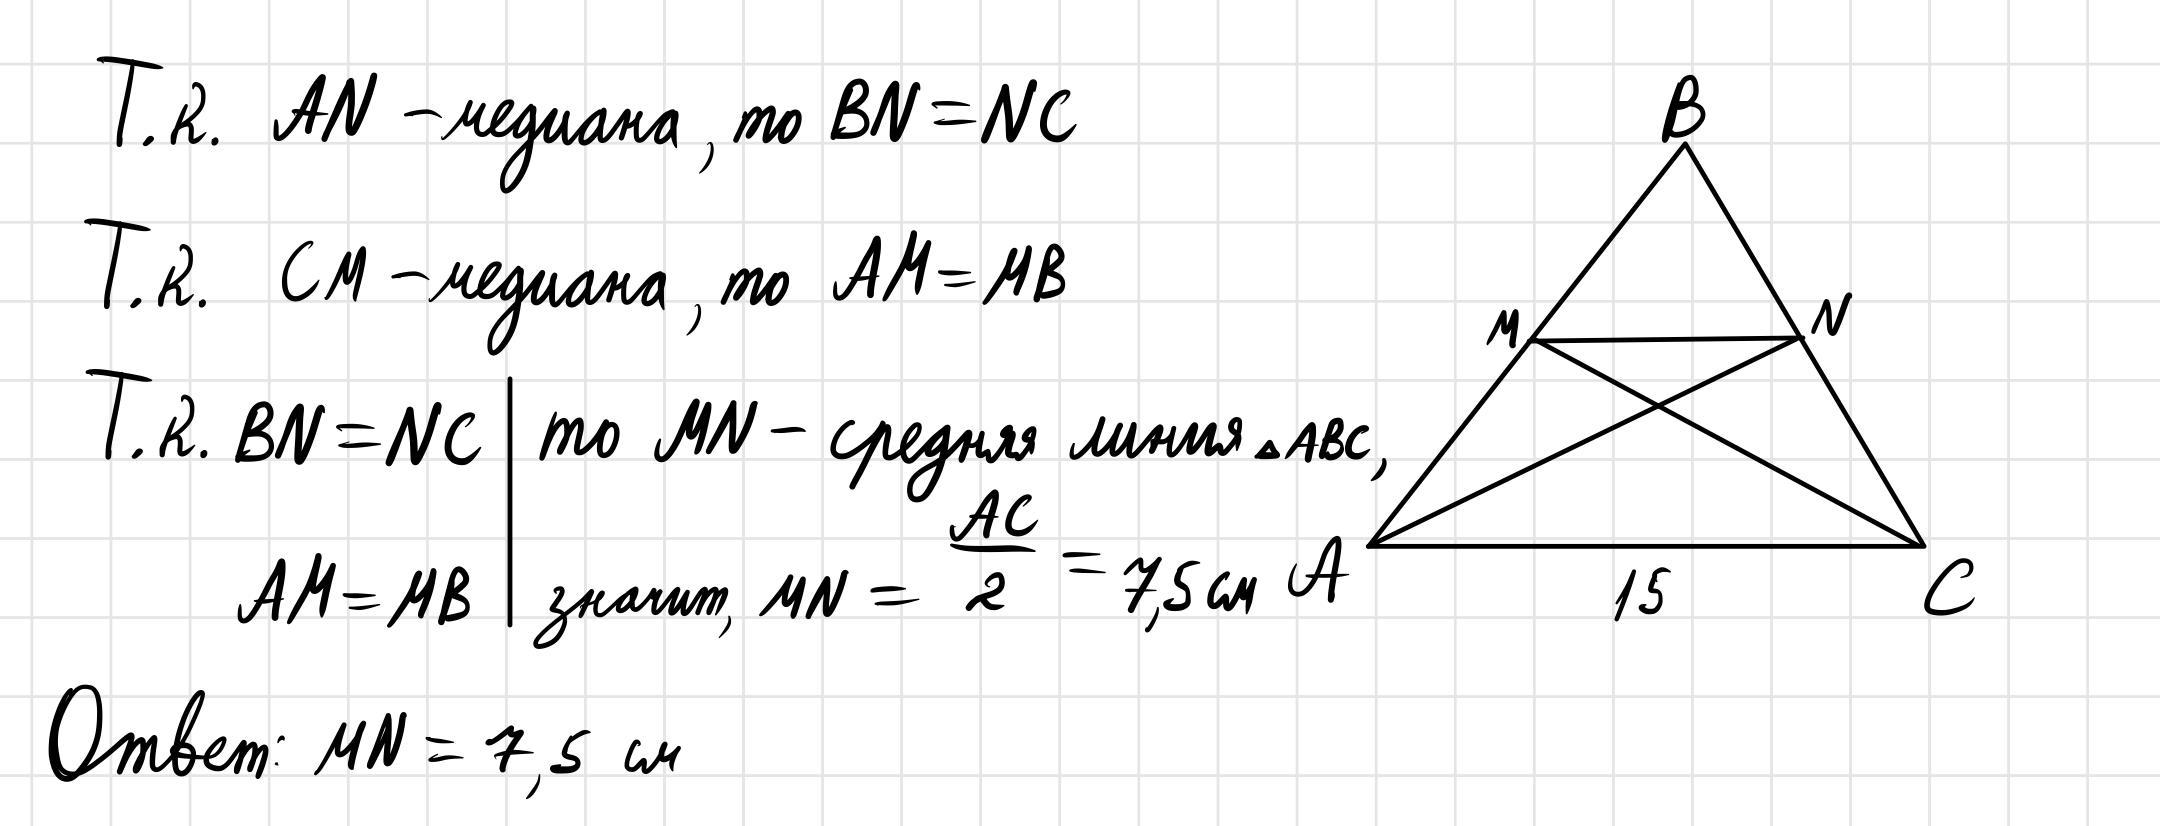 Т.к. AN – медиана, то BN = NC
Т.к. CM – медиана, то AM = MB
Т.к. BN = NC | то MN – средняя линия △ABC,
AM = MB | значит, MN = AC/2 = 7,5 см
Ответ: MN = 7,5 см
B
M
N
A
15
C